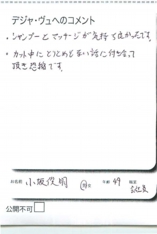 デジャ・ヴュへのコメント
・シャンプーとマッサージが気持ち良かったです。
・カット中にとりとめも無い話に付き合って
頂き恐縮です。
お名前 小坂俊明 男 年齢 49 職業 会社員
公開不可